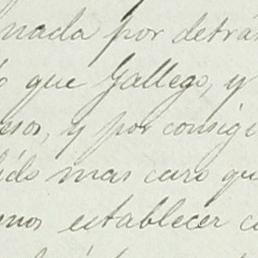 nada por detrá
que Gallego, y
y por consigu
mas caro qu
establecer c